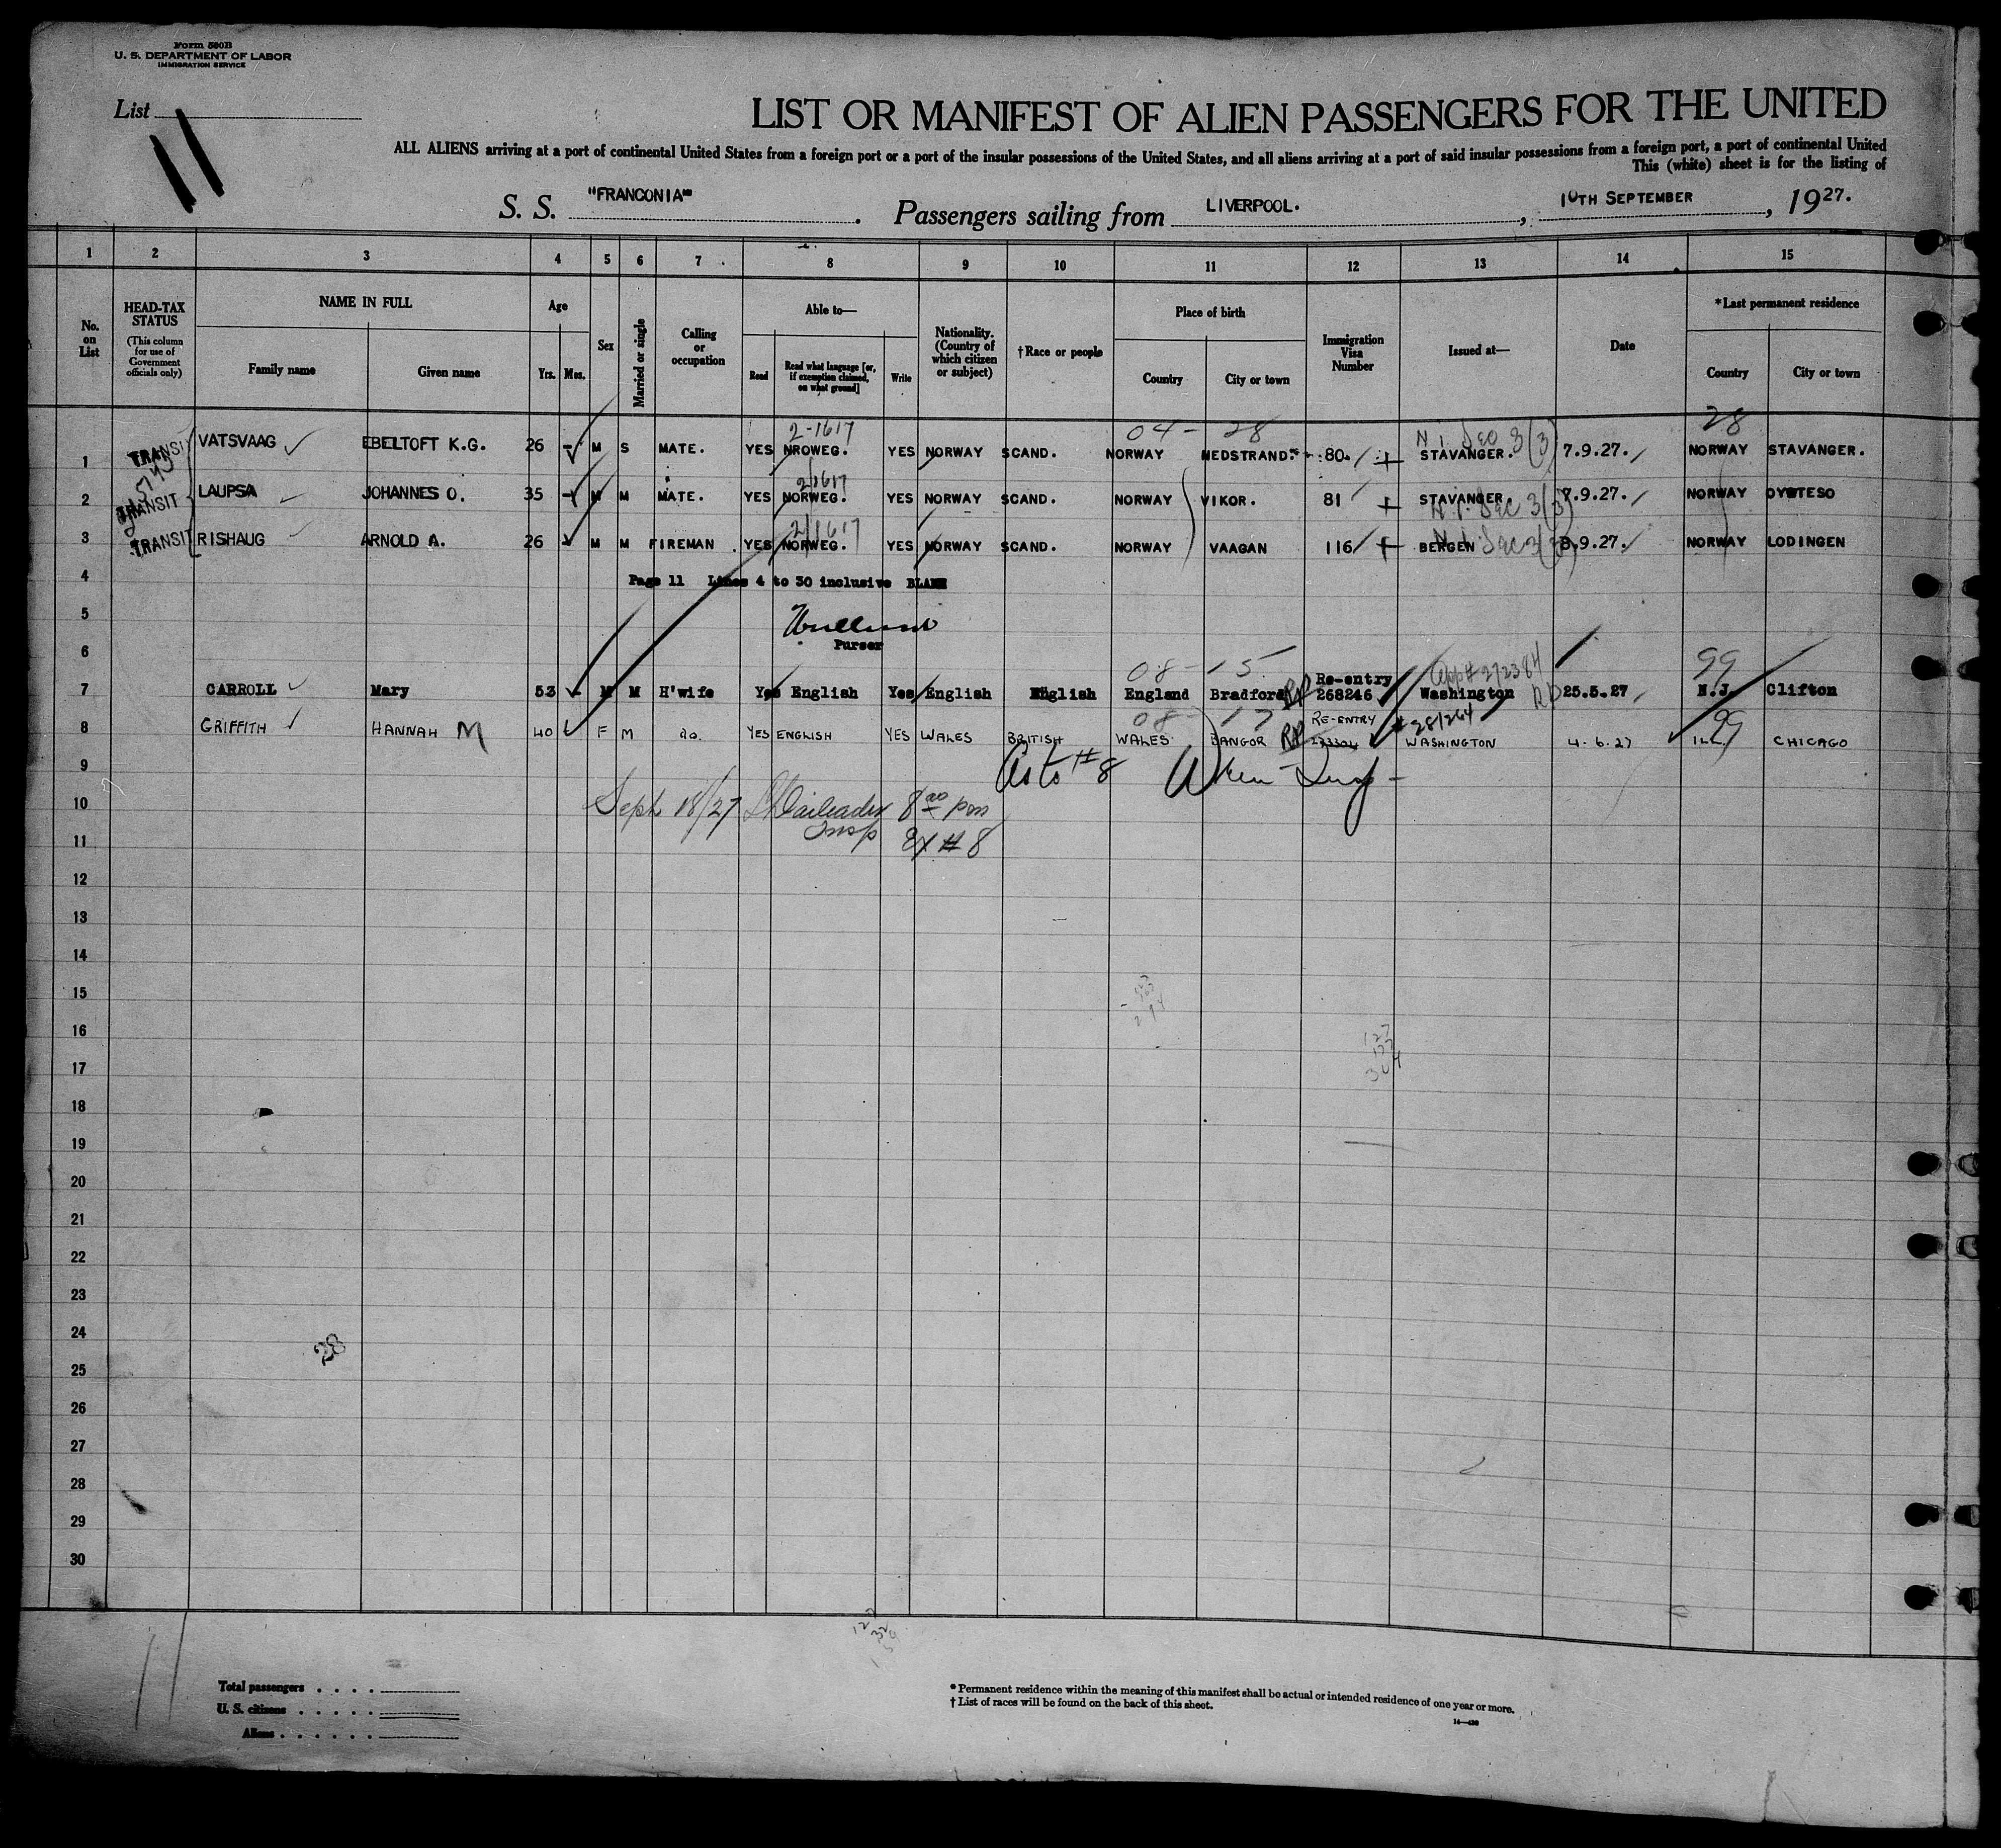 Form 500B
U. S. DEPARTMENT OF LABOR
IMMIGRATION SERVICE
List
11
LIST OR MANIFEST OF ALIEN PASSENGERS FOR THE UNITED
ALL ALIENS arriving at a port of continental United States from a foreign port or a port of the insular possessions of the United States, and all aliens arriving at a port of said insular possessions from a foreign port, a port of continental United
This (white) sheet is for the listing of
S. S. "FRANCONIA" . Passengers sailing from LIVERPOOL. , 10TH SEPTEMBER , 1927.
1 2 3 4 5 6 7 8 9 10 11 12 13 14 15
No. on List
HEAD-TAX STATUS
(This column for use of Government officials only)
NAME IN FULL
Family name
Given name
Age
Yrs. Mos.
Sex
Married or single
Calling or occupation
Able to—
Read
Read what language [or, if exemption claimed, on what ground]
Write
Nationality. (Country of which citizen or subject)
†Race or people
Place of birth
Country
City or town
Immigration Visa Number
Issued at—
Date
*Last permanent residence
Country
City or town
2-1617 04 - 28 28
1 TRANSIT VATSVAAG EBELTOFT K.G. 26 M S MATE. YES NROWEG. YES NORWAY SCAND. NORWAY NEDSTRAND. 80. STAVANGER. 3(3) 7.9.27. NORWAY STAVANGER.
2/1617
2 TRANSIT LAUPSA JOHANNES O. 35 M M MATE. YES NORWEG. YES NORWAY SCAND. NORWAY VIKOR. 81 STAVANGER. 7.9.27. NORWAY OYSTESO
2/1617 3(3)
3 TRANSIT RISHAUG ARNOLD A. 26 M M FIREMAN YES NORWEG. YES NORWAY SCAND. NORWAY VAAGAN 116 BERGEN 8.9.27. NORWAY LODINGEN
4 Page 11 Lines 4 to 30 inclusive BLANK
5
Purser
6
08 - 15 99
7 CARROLL Mary 53 M M H'wife Yes English Yes English English England Bradford Re-entry 268246 Washington 25.5.27 N.J. Clifton
08 - 17 99
8 GRIFFITH HANNAH M 40 F M do. YES ENGLISH YES WALES BRITISH WALES BANGOR RE-ENTRY WASHINGTON 4.6.27 ILL. CHICAGO
9 As to #8
10 Sept 18/27 8 00 pm
Insp
11 Ex # 8
12
13
14
15
16
17
18
19
20
21
22
23
24
25
26
27
28
29
30
Total passengers
U. S. citizens
Aliens
* Permanent residence within the meaning of this manifest shall be actual or intended residence of one year or more.
† List of races will be found on the back of this sheet.